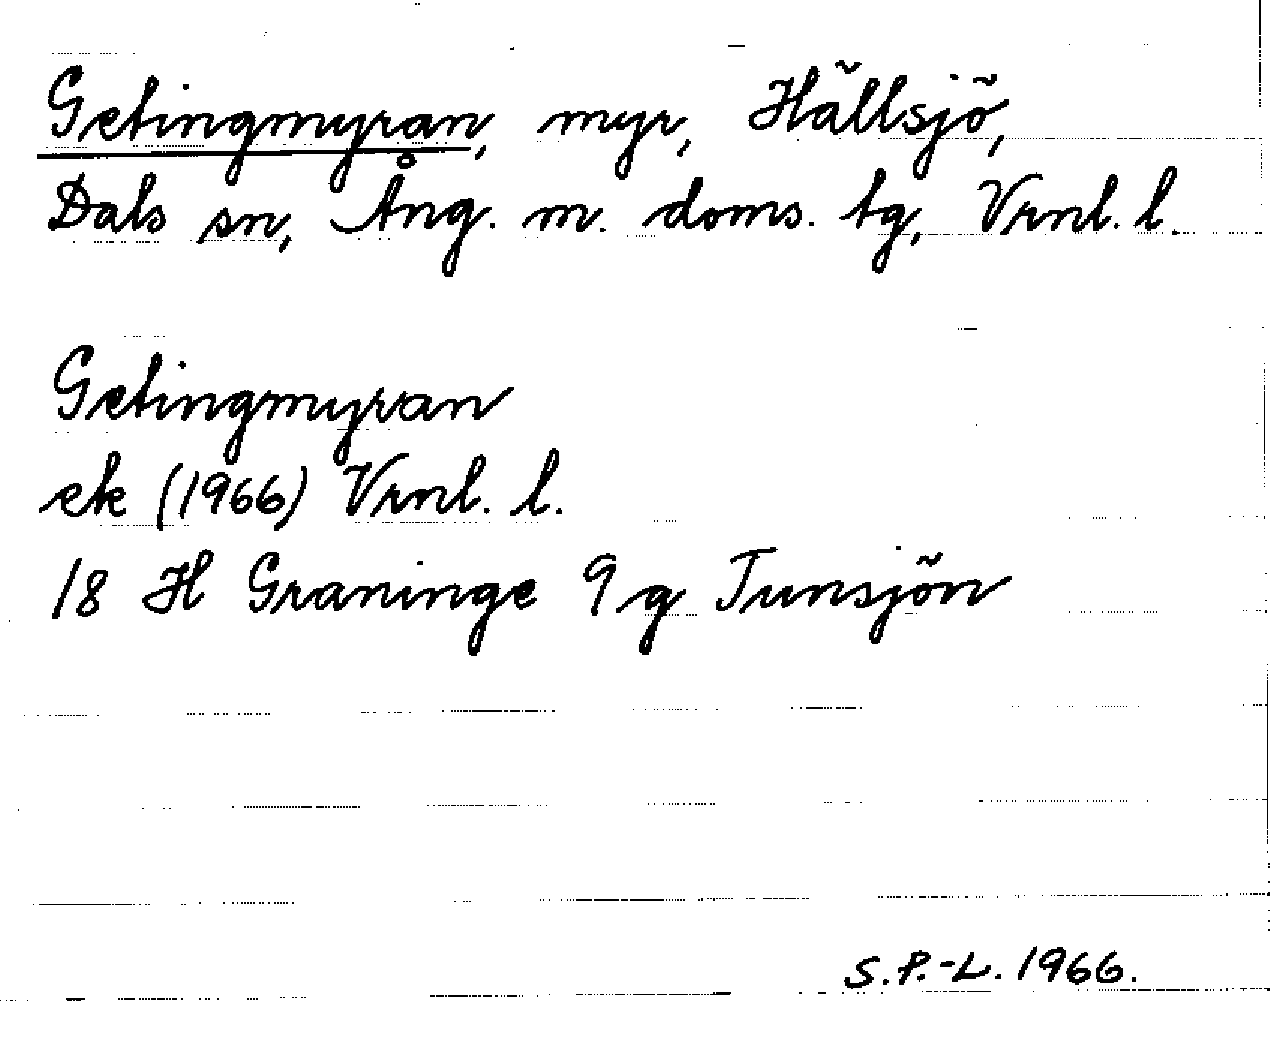 Getingmyran, myr, Hällsjö,
Dals sn, Ång. m. doms. tg, Vrnl. l.
Getingmyran
ek (1966) Vrnl. l.
18 H Graninge 9 g Tunsjön
S.P.-L. 1966.